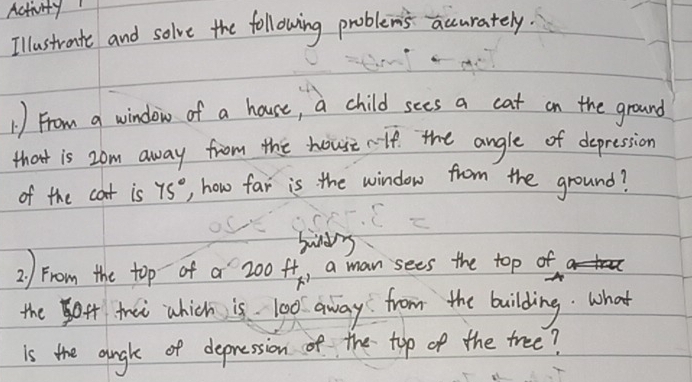 Activity 1
Illustrate and solve the following problems accurately.
1.) From a window of a house, a child sees a cat on the ground
that is 20m away from the house. If the angle of depression
of the cat is 75°, how far is the window from the ground?
building
2.) From the top of a 200 ft, a man sees the top of a tree
the 50ft tree which is 100 away from the building. What
is the angle of depression of the top of the tree?